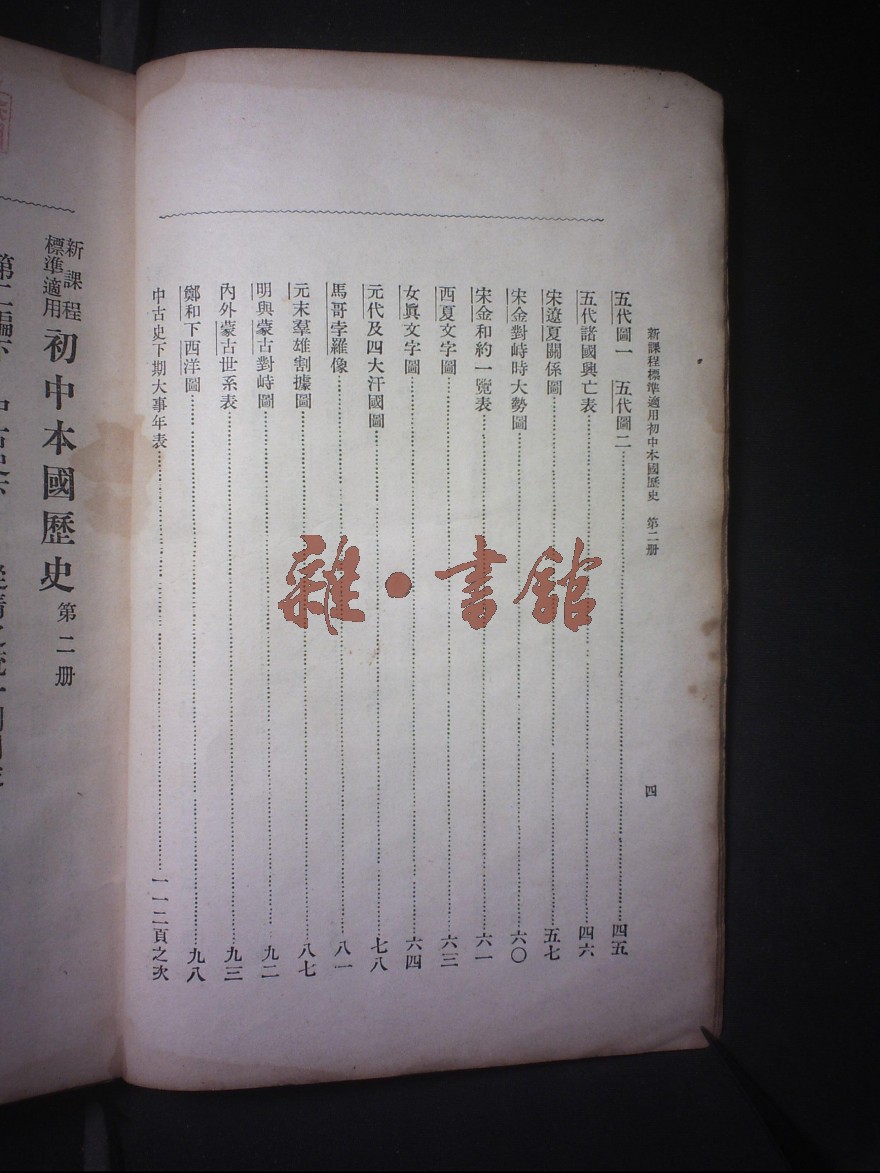 新課程標準適用初中本國歷史　第二册
四
五代圖一　五代圖二……四五
五代諸國興亡表……四六
宋遼夏關係圖……五七
宋金對峙時大勢圖……六〇
宋金和約一覽表……六一
西夏文字圖……六三
女眞文字圖……六四
元代及四大汗國圖……七八
馬哥孛羅像……八一
元末羣雄割據圖……八七
明與蒙古對峙圖……九二
內外蒙古世系表……九三
鄭和下西洋圖……九八
中古史下期大事年表……一一二頁之次
新課程
標準適用
初中本國歷史 第二册
雜·書舘